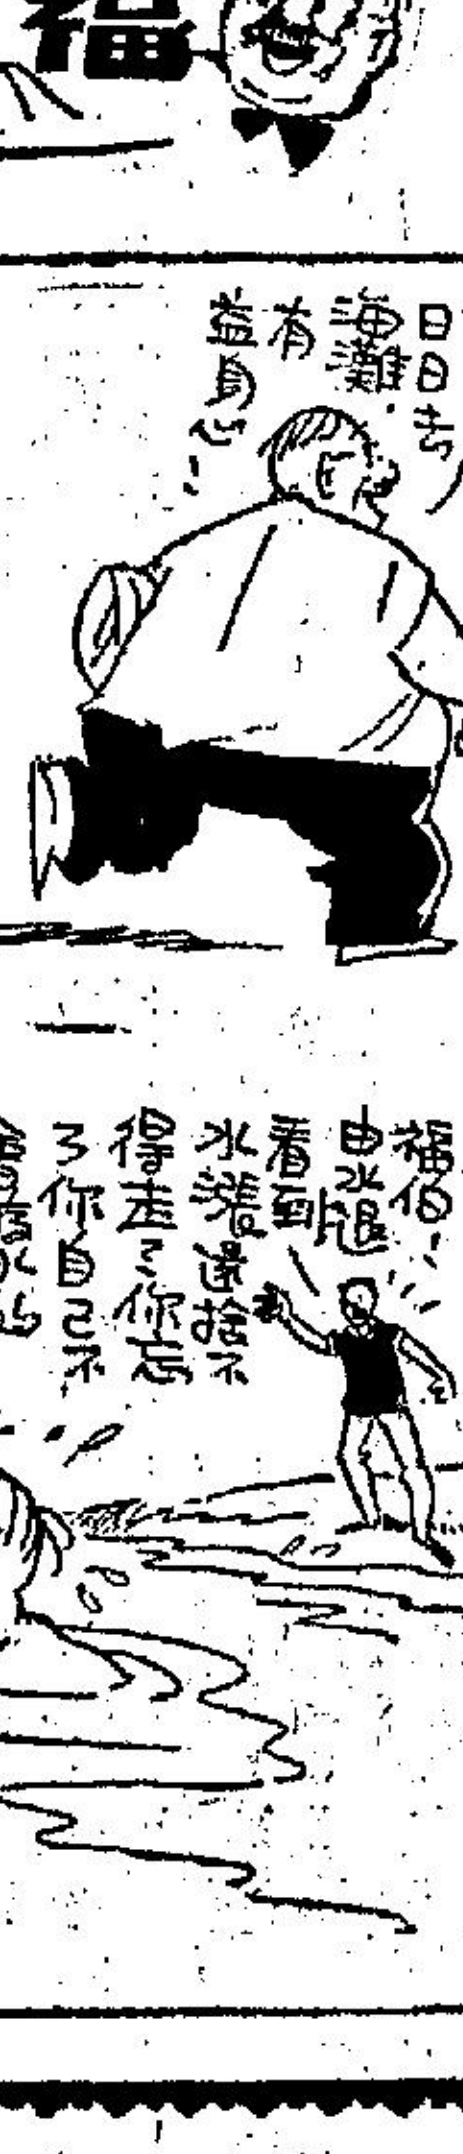 福
日日去
海灘，
有
益身心…
福伯！
由水退
看到
水漲還捨不
得走了你忘
了你自己不
會